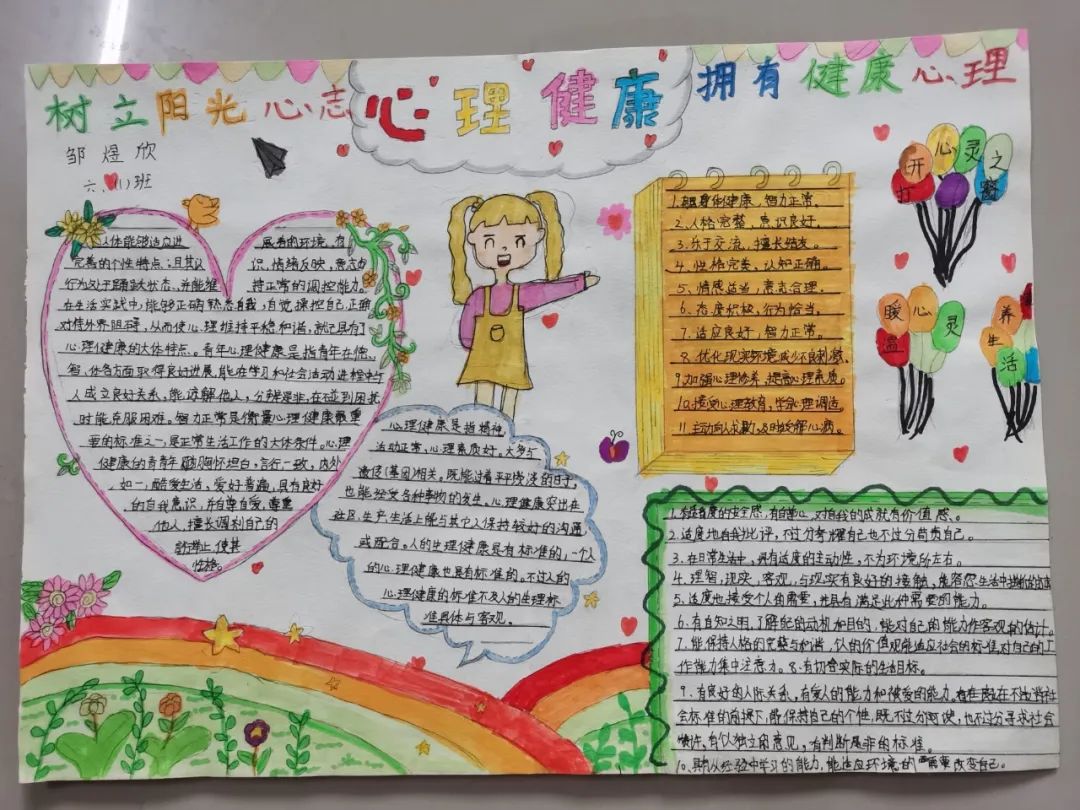 树立阳光心志 心理健康 拥有健康心理
邹煜欣
六、(1)班
人体能够适应进
完善的个性特点;且其认
识,情绪反映,意志
行为处于踊跃状态、并能维
持正常的调控能力。
在生活实践中,能够正确熟态自我,自觉操控自己,正确
对待外界阻碍,从而使心理维持平稳和谐,就已具有了
心理健康的大体特点。青年心理健康是指青年在
各方面取得良好进展,能在学习和社会活动进程中与
人成立良好关系,能谅解他人,分辨是非,在碰到困扰
时能克服困难。智力正常是衡量心理健康最重
要的标准之一,是正常生活工作的大体条件。心理
健康的青年,胸怀坦白,言行一致,内外
如一,酷爱生活,爱好普遍,具有良好
的自我意识,并自尊自爱,尊重
他人,擅长调剂自己的
行举止,使其
性格。
心理健康是指精神
活动正常,心理素质好。大多与
遗传(基因)相关。既能过着平平淡淡的日子,
也能接受各种事物的发生。心理健康突出在
社区、生产、生活上能与其它人保持较好的沟通
或配合。人的生理健康是有标准的,一个人
的心理健康也是有标准的。不过人的
心理健康的标准不及人的生理标
准具体与客观。
1.身体健康、智力正常。
2.人格完整、意识良好。
3.乐于交流、擅长结友。
4.性格完美、认知正确。
5.情感适当、意志合理。
6.态度积极、行为恰当。
7.适应良好、智力正常。
8.优化现实环境减少不良刺激。
9.加强心理修养,提高心理素质。
10.接受心理教育,学会心理调适。
11.主动向人求助,及时受解心病。
打开心灵之窗
温暖心灵
养生活
1.有适度的安全感,有自尊心,对自我的成就有价值感。
2.适度地自我批评,不过分夸耀自己也不过分苛责自己。
3.在日常生活中,具有适度的主动性,不为环境所左右。
4.理智,现实,客观,与现实有良好的接触,能容忍生活中挫折的打击
5.适度地接受个人的需要,并具有满足此种需要的能力。
6.有自知之明,了解自己的动机和目的,能对自己的能力作客观的估计。
7.能保持人格的完整与和谐,个人的价值观能适应社会的标准,对自己的工
作能集中注意力。8.有切合实际的生活目标。
9.有良好的人际关系,有爱人的能力和被爱的能力。在不违背社
会标准的前提下,能保持自己的个性,既不过分阿谀,也不过分寻求社会
赞许,有个人独立的意见,有判断是非的标准。
10.具有从经验中学习的能力,能适应环境的改变自己。